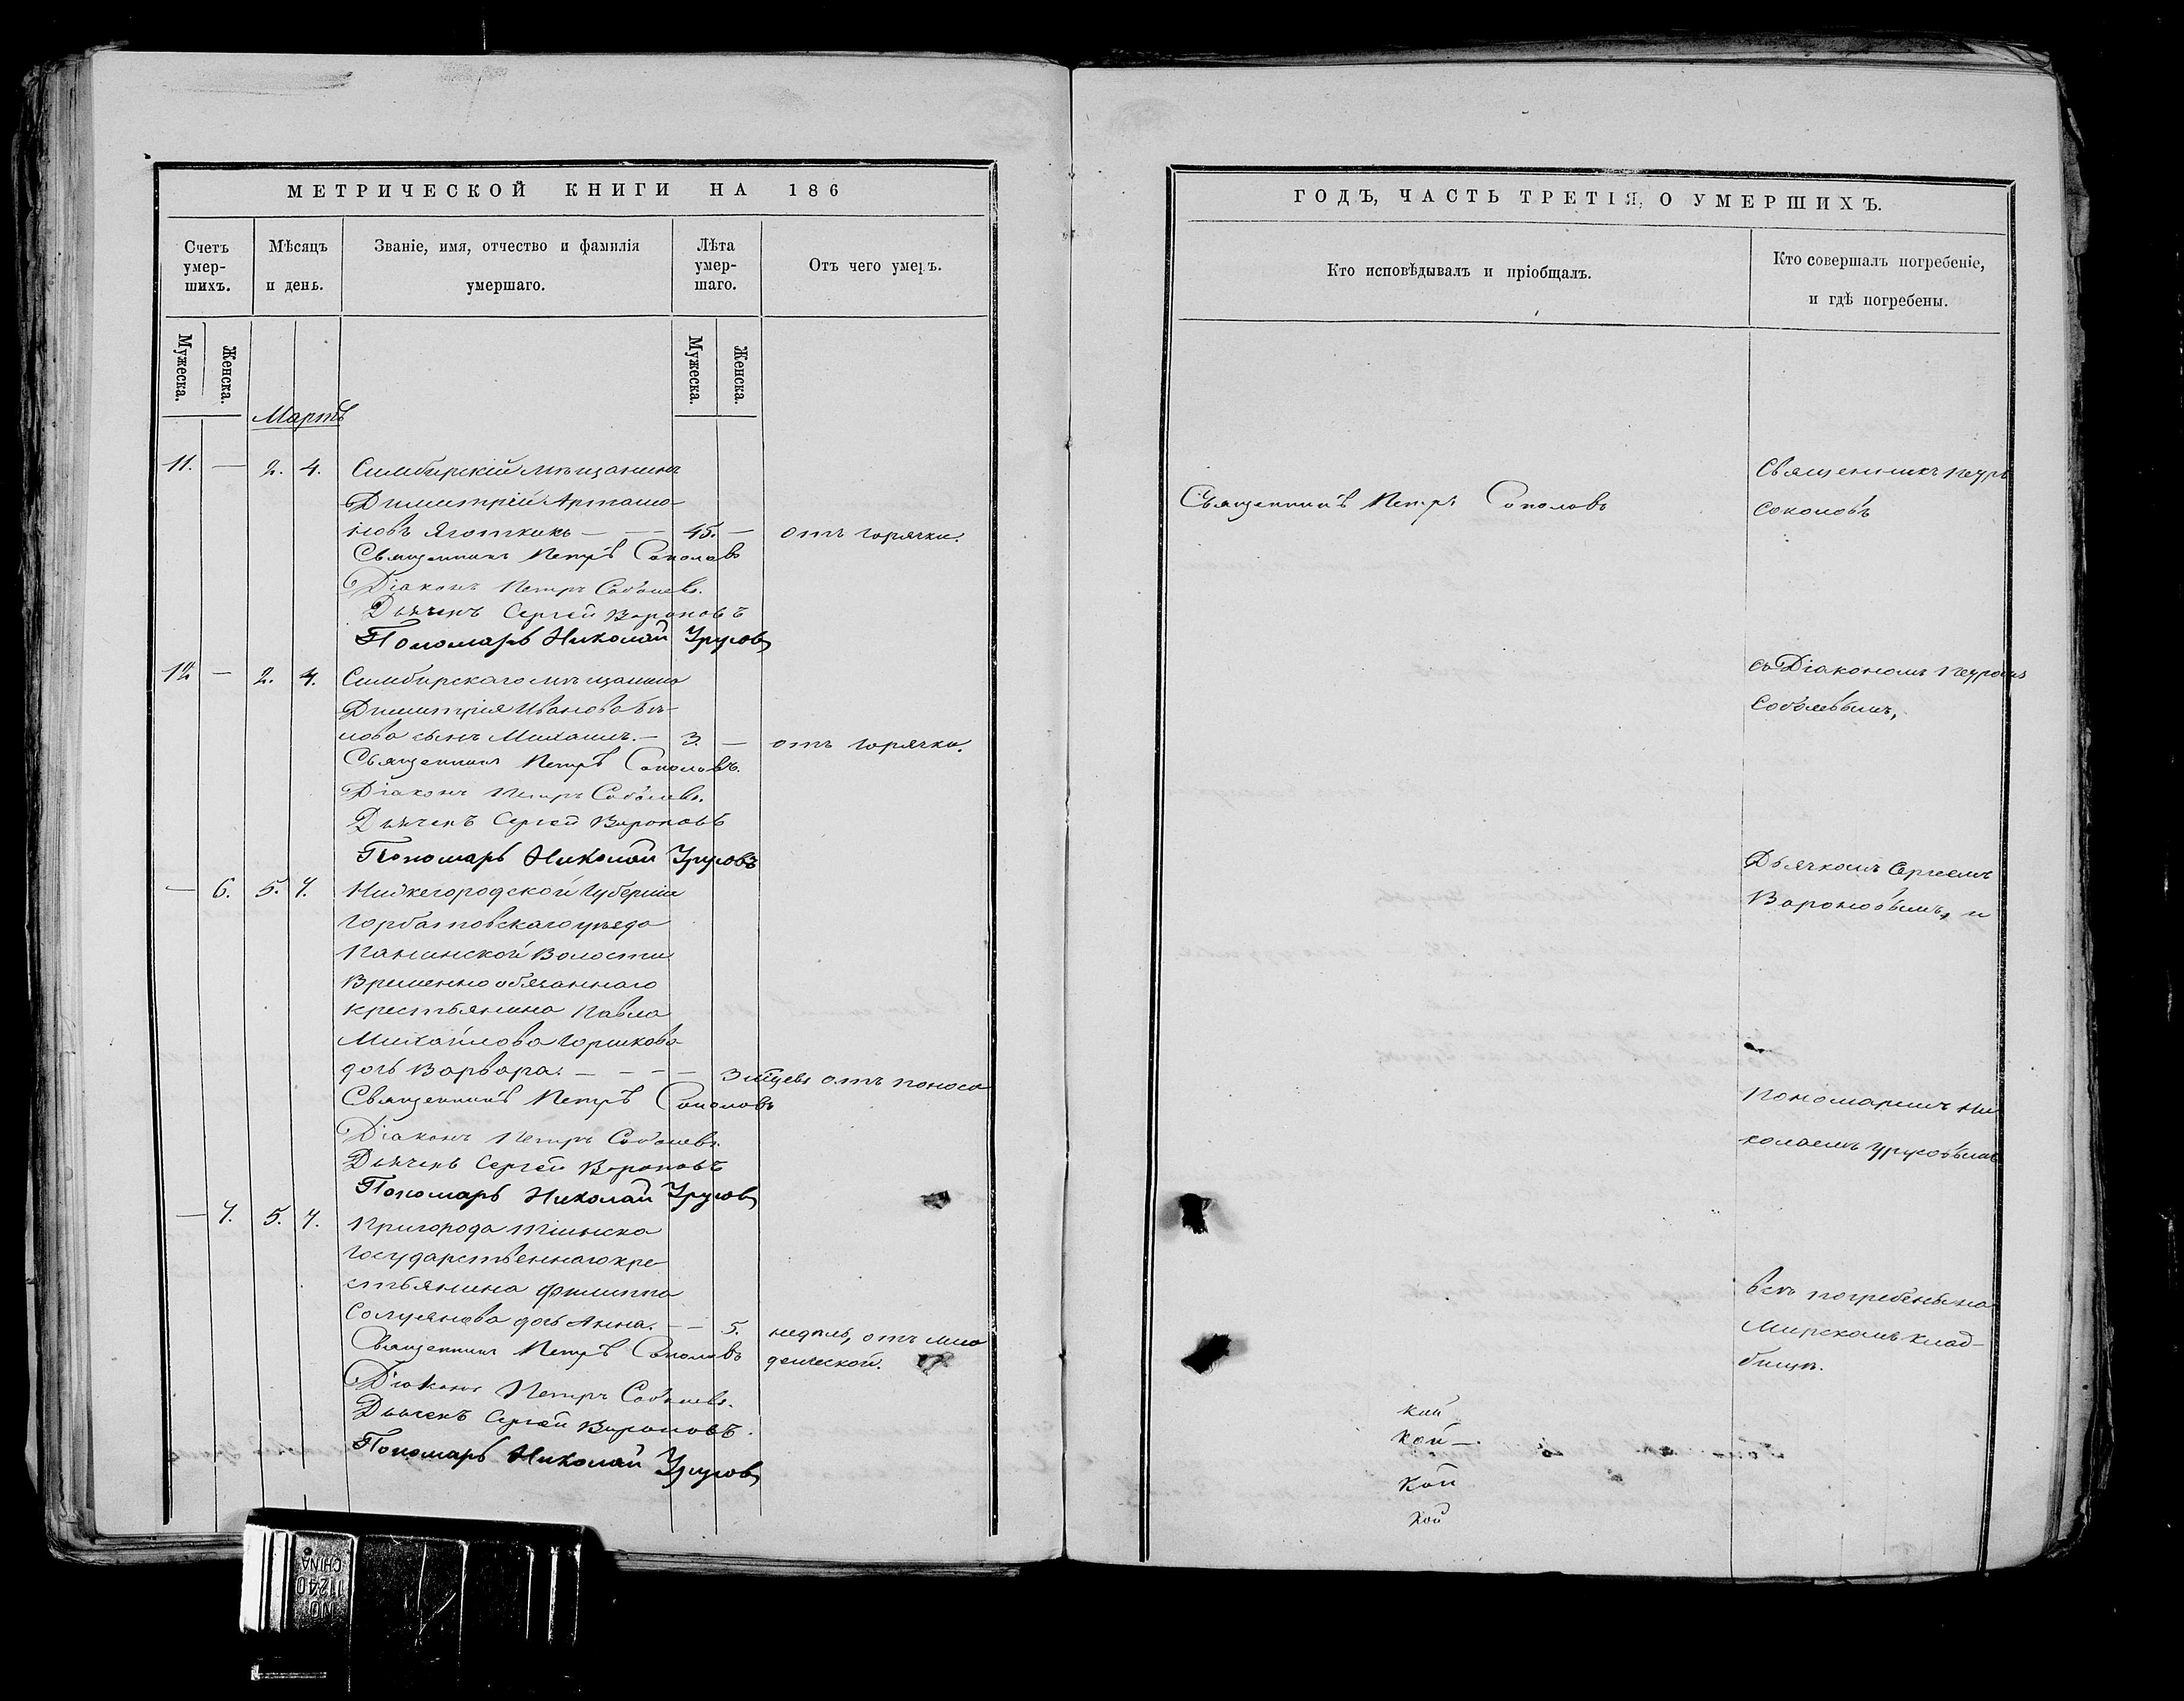 МЕТРИЧЕСКОЙ КНИГИ НА 186
Счетъ умер-шихъ.
Мѣсяцъ и день.
Званіе, имя, отчество и фамилія умершаго.
Лѣта умер-шаго.
Отъ чего умеръ.
Мужеска.
Женска.
Мужеска.
Женска.
Мартъ
11. — 2. 4. Симбирскій мѣщанинъ
Димитрій Артамо-
новъ — — 45. — отъ горячки.
Священникъ Петръ Соколовъ
Діаконъ Петръ Соболевъ.
Дьячекъ Сергей Вороновъ
Пономарь Николай Урусовъ
12 — 2. 4. Симбирскаго мѣщанина
Димитрія Иванова Бѣ-
лова сынъ Михаилъ. — 3. — отъ горячки.
Священникъ Петръ Соколовъ.
Діаконъ Петръ Соболевъ.
Дьячекъ Сергей Вороновъ
Пономарь Николай Урусовъ
— 6. 5. 7. Нижегородской Губерніи
Горбатовскаго уѣзда
Панинской Волости
Временно обязаннаго
крестьянина Павла
Михайлова Горшкова
дочь Варвара. — — — — 3 мѣцевъ отъ поноса
Священникъ Петръ Соколовъ
Діаконъ Петръ Соболевъ.
Дьячекъ Сергей Вороновъ
Пономарь Николай Урусовъ
— 7. 5. 7. Пригорода Тіинска
Государственнаго кре-
стьянина Филиппа
дочь Анна. — — 5. недѣль, отъ мла
Священникъ Петръ Соколовъ денческой.
Діаконъ Петръ Соболевъ.
Дьячекъ Сергей Вороновъ.
Пономарь Николай Урусовъ
ГОДЪ, ЧАСТЬ ТРЕТІЯ, О УМЕРШИХЪ.
Кто исповѣдывалъ и пріобщалъ.
Кто совершалъ погребеніе,
и гдѣ погребены.
Священникъ Петръ Соколовъ
Священникъ Петръ
Соколовъ
съ Діакономъ Петромъ
Соболевымъ,
Дьячкомъ Сергеемъ
Вороновымъ, и
Пономаремъ Ни
колаемъ Урусовымъ
всѣ погребены на
Мирскомъ клад-
бищѣ.
кій
кой —
кой
кой